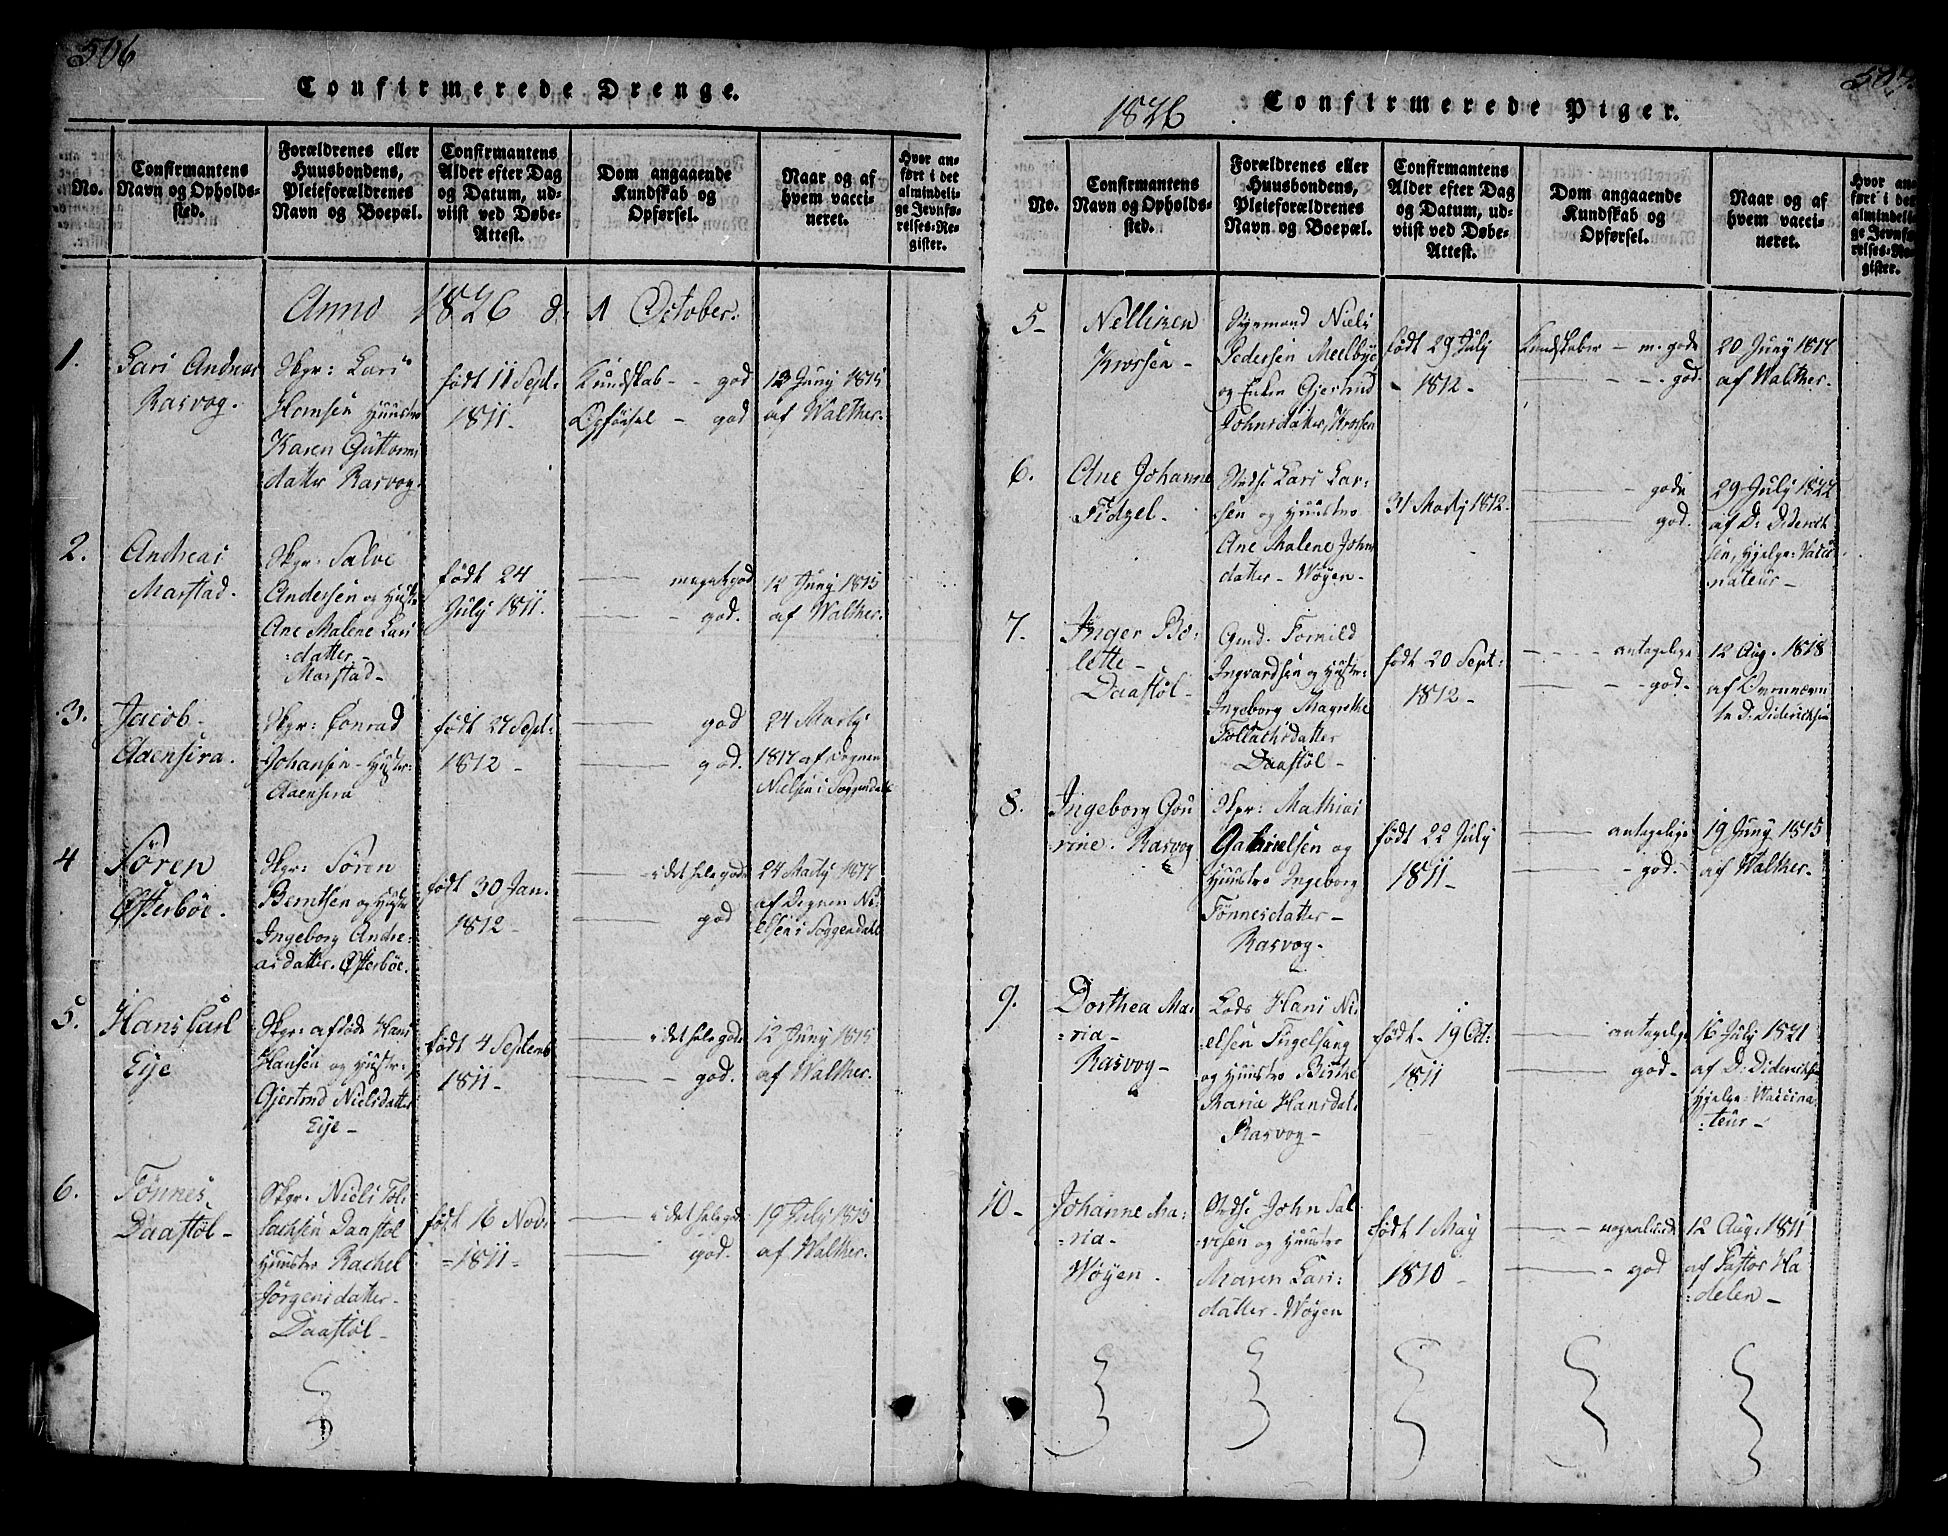 506
Confirmerede Drenge.
No.
Confirmantens Navn og Opholds-sted.
Forældrenes eller Huusbondens, Pleieforældrenes Navn og Boepæl.
Confirmantens Alder efter Dag og Datum, ud-viist ved Døbe-Attest.
Dom angaaende Kundskab og Opførsel.
Naar og af hvem vacci-neret.
Hvor an-ført i det almindeli-ge Jevnfø-relses-Re-gister.
Anno 1826 d: 1 October.
1.
Lars Andreas
Rasvog.
Skpr: Lars
Homsen Huustro
Karen Guttorms
datter Rasvog.
født 11 Sept:
1811.
Kundskab - - god
Opførsel - god
12 Juny 1815
af Walther.
2.
Andreas
Marstad.
Skpr: Salve
Andersen og Hustr
Ane Malene Lars
:datter -
Marstad -
født 24
July 1811.
meget god
- god.
12 Juny 1815
af Walther.
3.
Jacob
Aaensira.
Skpr: Conrad
Johansen - Hustr:
Aaensira
født 27 Sept:
1812 -
god
god.
24 Martj
1817 af Degnen
Nielsen i Soggendal
4
Sören
Østerböe.
Skpr: Sören
Berntsen og Hustr
Ingeborg Andre:
asdatter. Østerböe.
født 30 Jan.
1812 -
i det hele god
god
24 Martj 1817
af Degnen Ni:
elsen i Soggendal
5.
Hans Carl
Eije
Skpr: afdöde Hans
Hansen og Hustr:
Gjertrud Nielsdatter
Eije -
født 4 Septemb
1811 -
i det hele god
- god.
12 Juny 1815
af Walther.
6.
Tönnes
Daastöl -
Skpr: Niels Tol:
lachsen Daastöl
Huustro Rachel
Jörgensdatter -
Daastöl -
født 16 Nov:
1811 -
i det hele god
god.
19 July 1815
af Walther.
507.
1826
Confirmerede Piger.
No.
Confirmantens Navn og Opholds-sted.
Forældrenes eller Huusbondens, Pleieforældrenes Navn og Boepæl.
Confirmantens Alder efter Dag og Datum, ud-viist ved Døbe-Attest.
Dom angaaende Kundskab og Opførsel.
Naar og af hvem vacci-neret.
Hvor an-ført i det almindeli-ge Jevnfø-relses-Re-gister.
5 -
Nelliken
Krossen -
Niels
Pedersen Meelbye
og Enken Gjertrud
Johnsdatter, Krossen
født 29 July
- 1812 -
Kundskaber - m. gode
- god.
20 Juny 1817
af Walther.
6.
Ane Johanne
Fidzel.
Lars Lar:
:sen og Huustro
Ane Malene Johns
datter - Wöyen -
31 Martj 1812.
gode
god.
29 July 1822
af D: Diderich
sen, Hjelpe: Vacci
nateur -
7.
Inger Bo:
lette -
Daastöl -
Gmd. Tormild
Ingvardsen og Hustr:
Ingeborg Magrethe
Tollachsdatter
Daastöl -
født 20 Sept:
1812 -
antagelige
- god.
12 Aug. 1818
af
D: Diderichsen
8.
Ingeborg Gou
rine. Rasvog
Skpr: Mathias
Gabrielsen og
Huustro Ingeborg
Tönnesdatter -
Rasvog -
født 22 July
1811 -
antagelige
- god.
19 Juny 1815
af Walther.
9.
Dorthea Ma:
:ria -
Rasvog -
Lods Hans Ni:
:elsen Fugelsang
og Huustro Birthe
Maria Hansdat:
Rasvog -
født - 19 Oct:
1811
antagelige
god -
16 July 1821
af D: Diderichs
Hjelpe: Waccina
:teur -
10 -
Johanne Ma:
:ria -
Wöyen -
John Sal
:vesen og Huustro
Maren Lars:
datter - Wöyen
født 1 May
1810 -
nogenlunde
- god
12 Aug: 1811
af Pastor Ha
:delen -